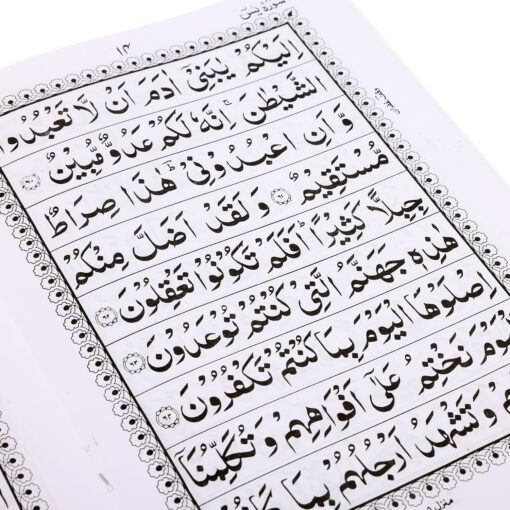 سورة يس
١٣
اِلَيْكُمْ يٰبَنِيْٓ اٰدَمَ اَنْ لَّا تَعْبُدُوا
الشَّيْطٰنَ ۚ اِنَّهٗ لَكُمْ عَدُوٌّ مُّبِيْنٌ ۙ
وَّ اَنِ اعْبُدُوْنِيْ ؕ هٰذَا صِرَاطٌ
مُّسْتَقِيْمٌ ٦١ وَ لَقَدْ اَضَلَّ مِنْكُمْ
جِبِلًّا كَثِيْرًا ؕ اَفَلَمْ تَكُوْنُوْا تَعْقِلُوْنَ ٦٢
هٰذِهٖ جَهَنَّمُ الَّتِيْ كُنْتُمْ تُوْعَدُوْنَ ٦٣
اِصْلَوْهَا الْيَوْمَ بِمَا كُنْتُمْ تَكْفُرُوْنَ ٦٤
نَخْتِمُ عَلٰٓى اَفْوَاهِهِمْ وَ تُكَلِّمُنَآ
وَ تَشْهَدُ اَرْجُلُهُمْ بِمَا